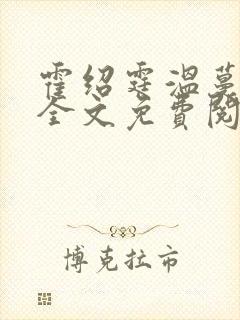 霍绍霆温蔓
全文免费閱
博克拉市